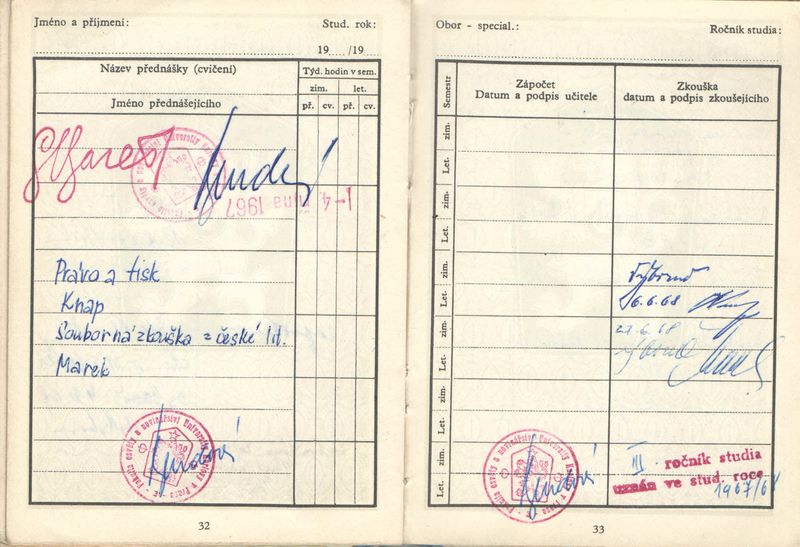 Jméno a příjmení:
Stud. rok:
19 /19
Název přednášky (cvičení)
Týd. hodin v sem.
zim.
let.
Jméno přednášejícího
př.
cv.
př.
cv.
Marek
1967
Právo a tisk
Knap
Souborná zkouška z české lit.
Marek
Fakulta osvěty a novinářství University Karlovy v Praze
32
Obor - special.:
Ročník studia:
Semestr
Zápočet
Datum a podpis učitele
Zkouška
datum a podpis zkoušejícího
zim.
Let.
zim.
Let.
zim.
Let.
zim.
Let.
zim.
Let.
zim.
Let.
Výborně
6.6.68
výborně
Fakulta osvěty a novinářství University Karlovy v Praze
III. ročník studia
uznán ve stud. roce
1967/68
33